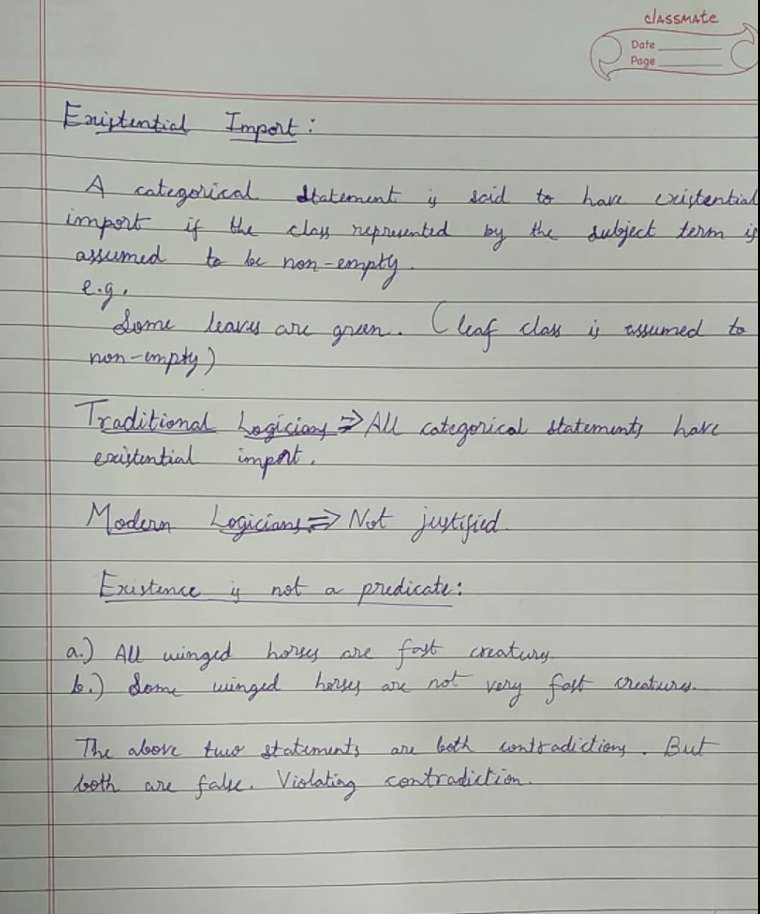 classmate
Date
Page
Existential Import:
A categorical statement is said to have existential
import if the class represented by the subject term is
assumed to be non-empty.
e.g.
Some leaves are green. (leaf class is assumed to
non-empty)
Traditional Logicians ⇒ All categorical statements have
existential import.
Modern Logicians ⇒ Not justified.
Existence is not a predicate:
a.) All winged horses are fast creatures
b.) Some winged horses are not very fast creatures.
The above two statements are both contradictions. But
both are false. Violating contradiction.